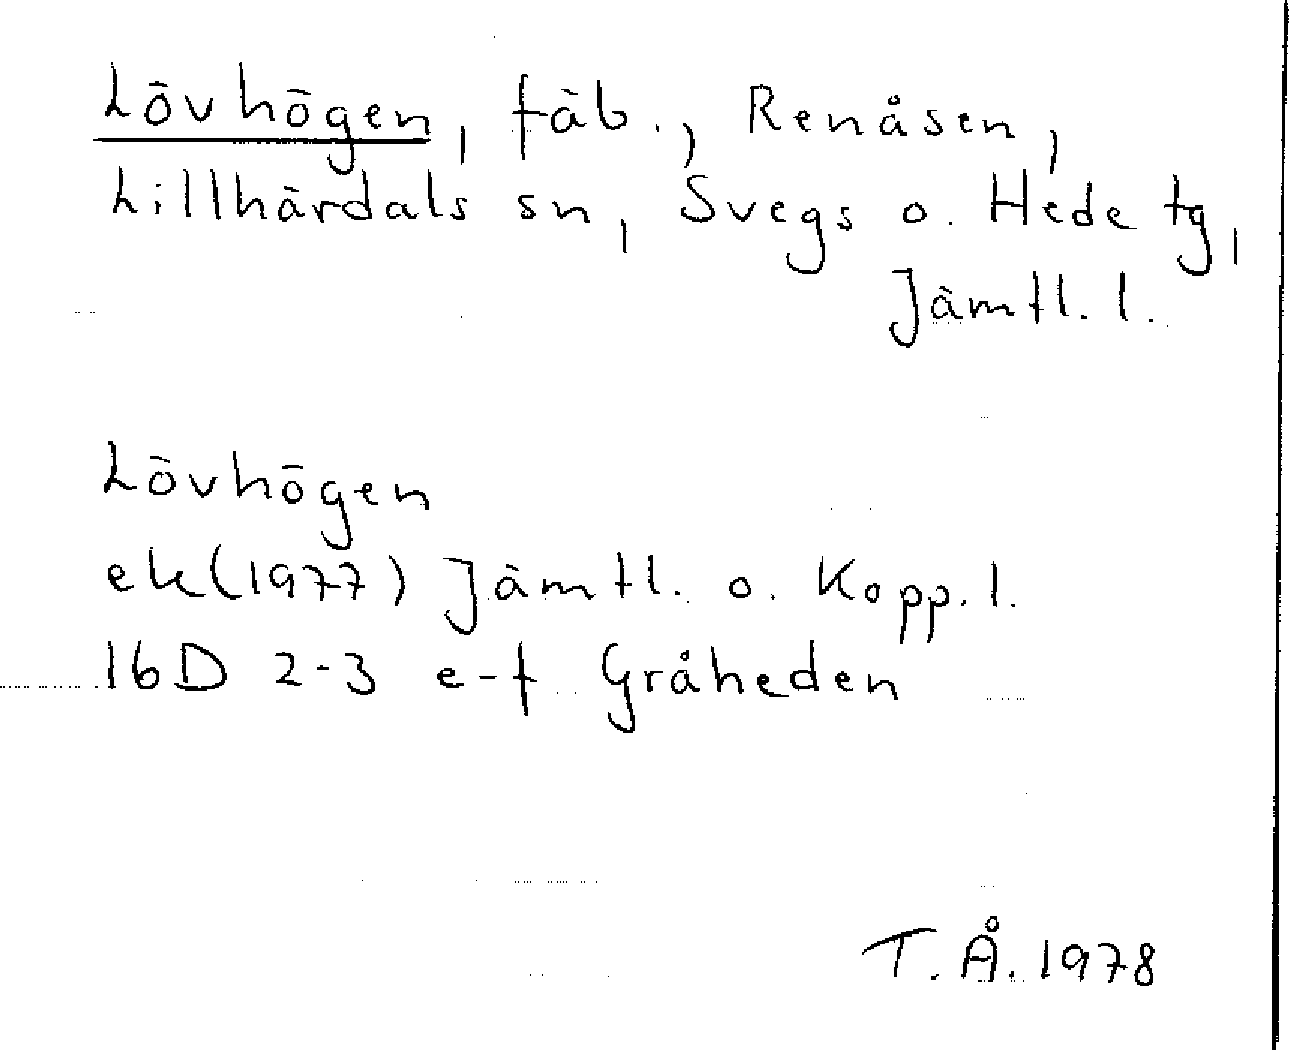 Lövhögen, fäb., Renåsen,
Lillhärdals sn, Svegs o. Hede tg,
Jämtl. l.
Lövhögen
ek(1977) Jämtl. o. Kopp. l.
16D 2-3 e-f Gråheden
T.Å. 1978